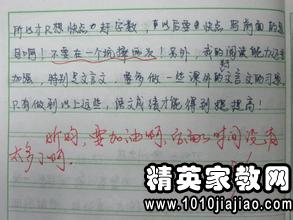 所以才只想快点也赶字数，所以后要快点写前面的题
目啊！不要在一个坑摔两次！另外，我的阅读能力还要
加强，特别是文言文，要多做一些课外的文言文的习题，
只有做到以上这些，语文成绩才能得到提高！
听的，要加油啊，时间没有
太多了啊。
精英家教网
www.1010jiajiao.com